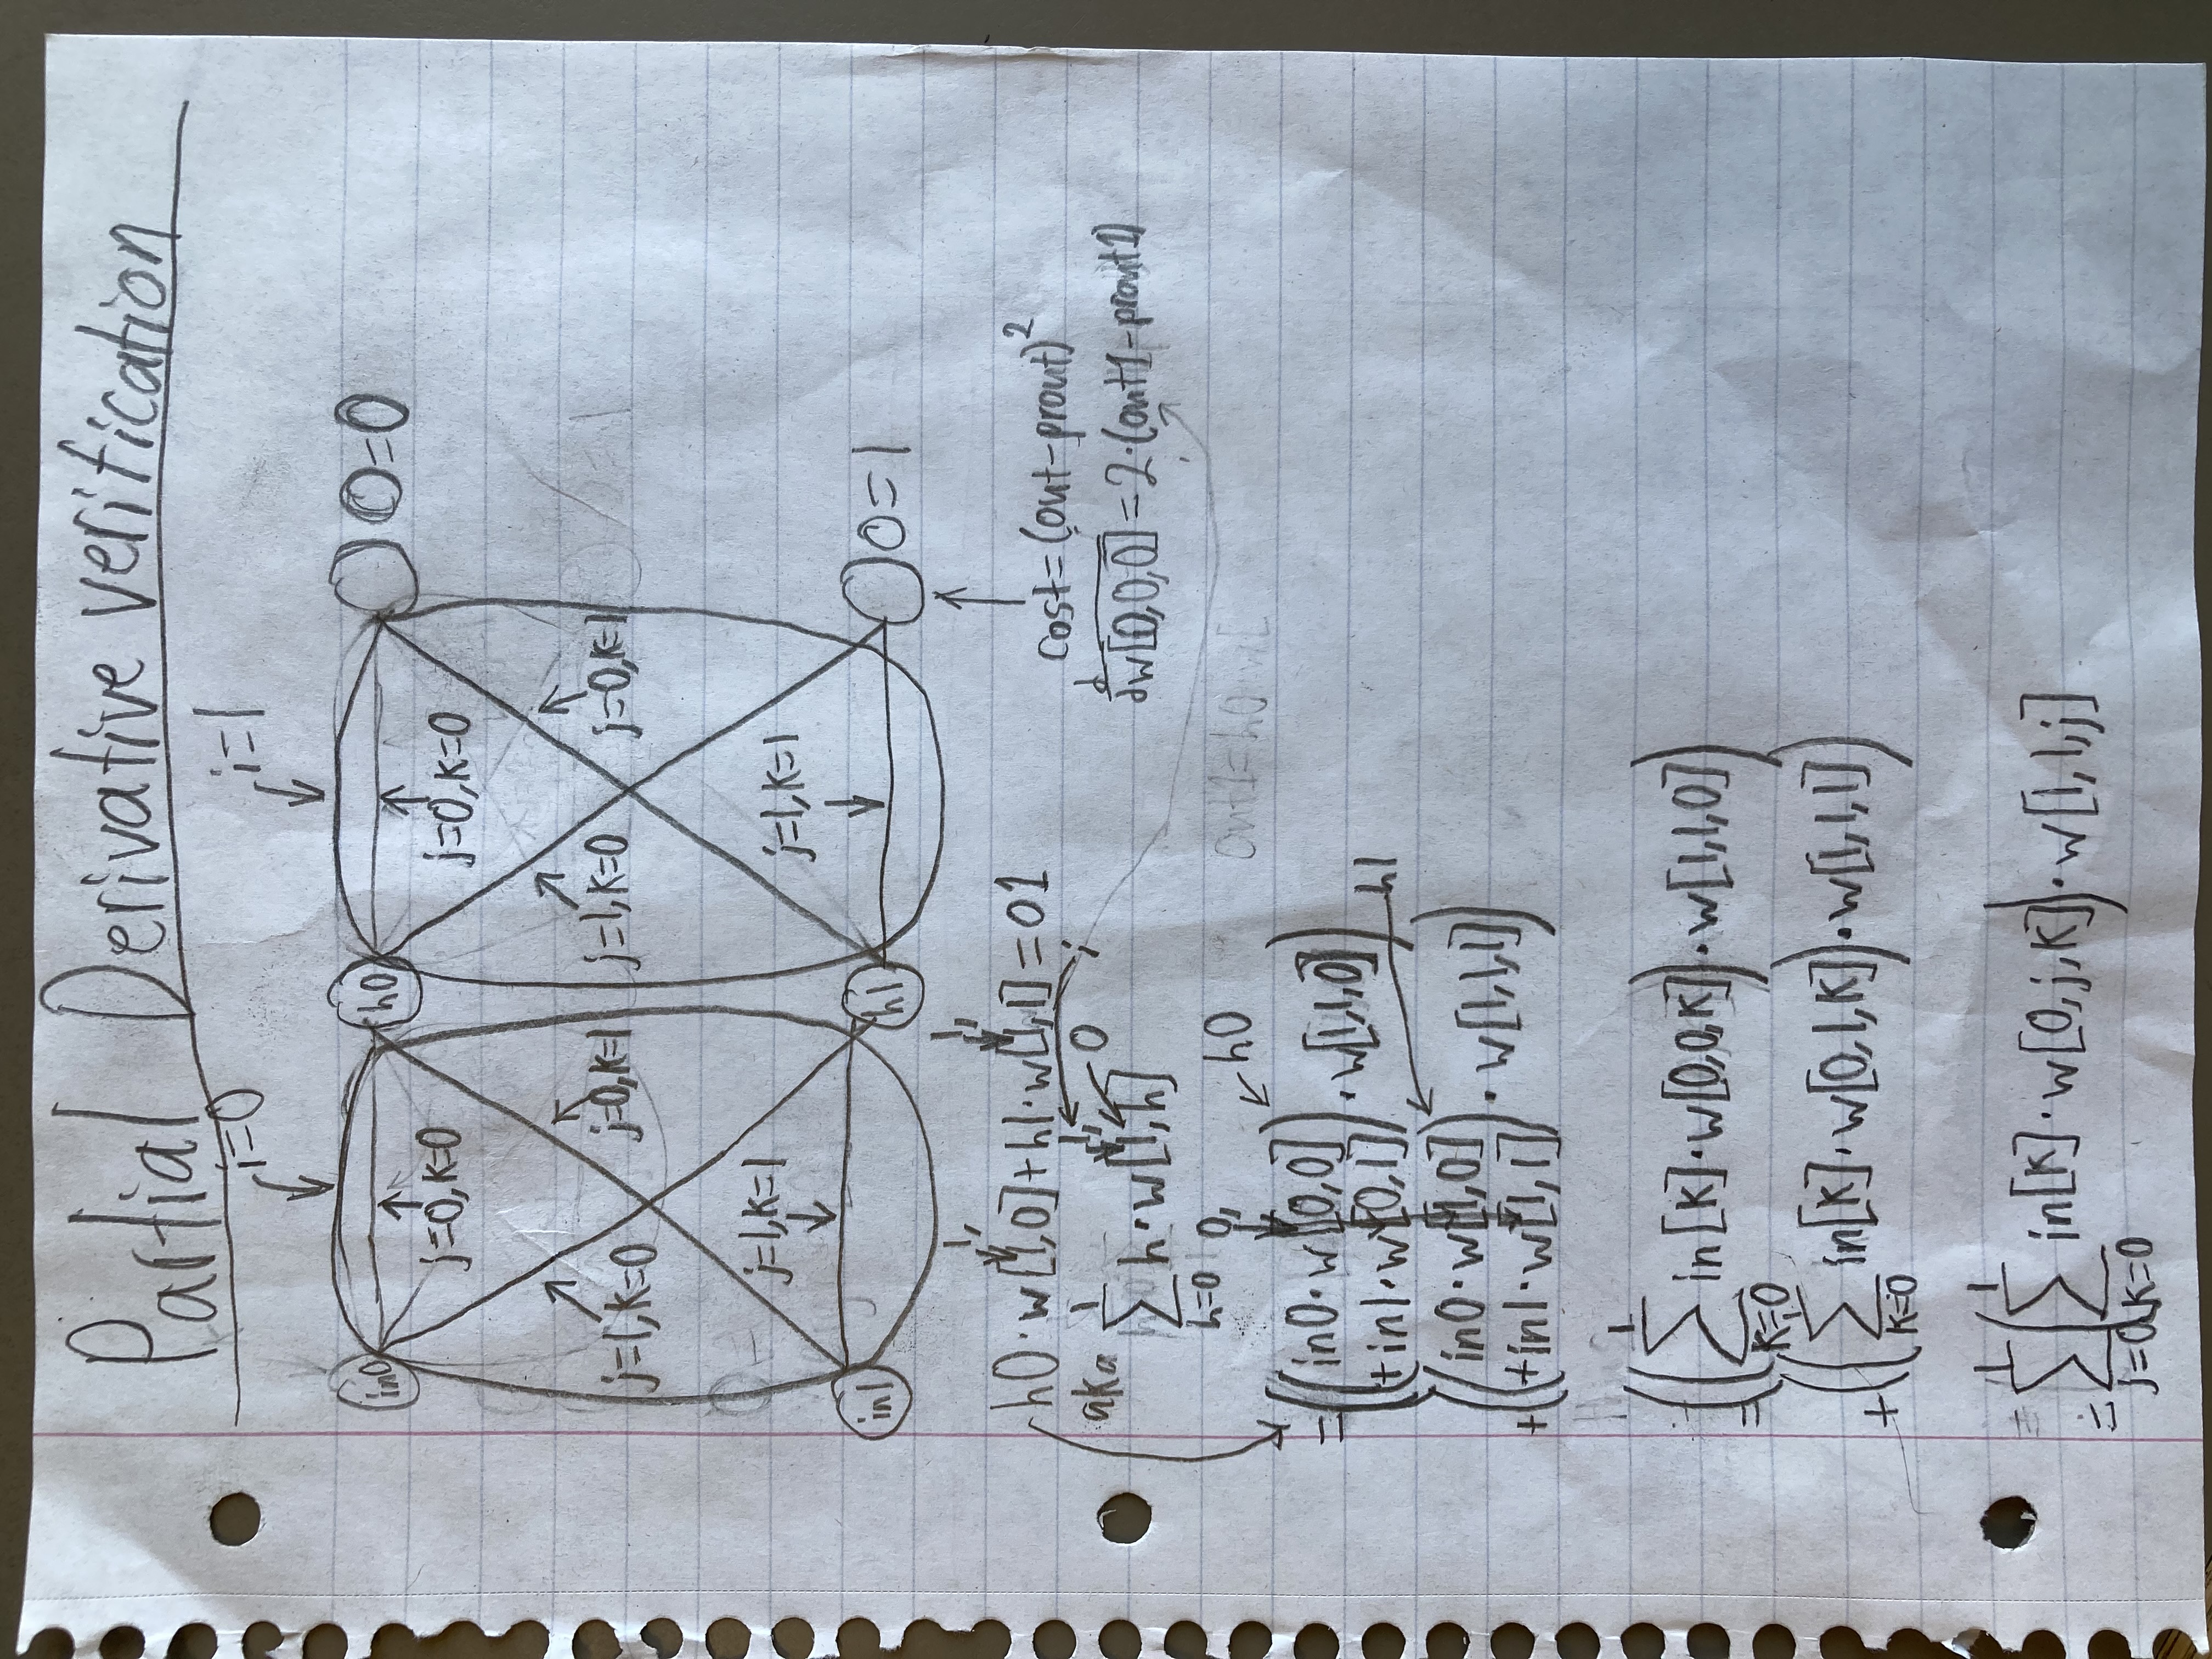 Partial Derivative verification
i=0 i=1
in0 h0 O=0
j=0,k=0 j=0,k=0
j=1,k=0 j=0,k=1 j=1,k=0 j=0,k=1
j=1,k=1 j=1,k=1
in1 h1 0=1
1, 1,
h0·w[1,0]+h1·w[1,1]=01
cost=(out-prout)²
aka 1 1, 0 i
∑ h·w[1,h]
h=0
d
dw[0,0,0] =2·(out1-prout1)
0, h0
out1=h0·w[
=((in0·w[0,0]
+in1·w[0,1])·w[1,1,0])
h1
+((in0·w[1,0]
+in1·w[1,1])·w[1,1,1])
1
=((∑ in[k]·w[0,0,k])·w[1,1,0])
k=0
1
+((∑ in[k]·w[0,1,k])·w[1,1,1])
k=0
1 1
=∑(∑ in[k]·w[0,j,k])·w[1,1,j]
j=0 k=0